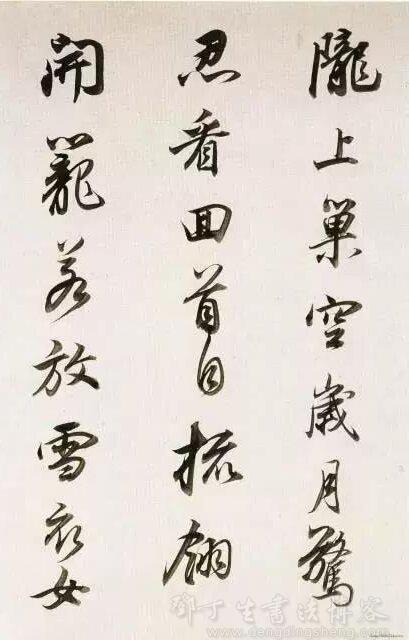 隴上巢空歲月驚
忍看回首自梳翎
開籠若放雪衣女
鄧丁生書法博客
www.dengdingsheng.com